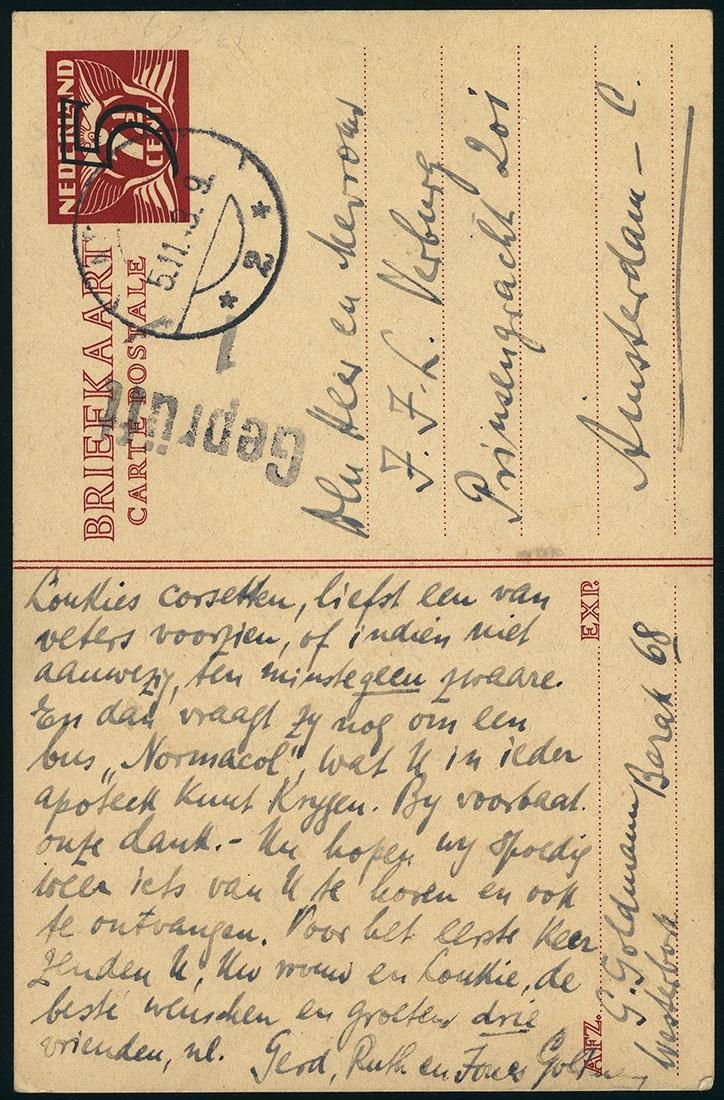 NEDERLAND
5
7½
CENT
BRIEFKAART
CARTE POSTALE
5.11.43.9.
* 2 *
1
Geprüft
Heer en Mevrouw
J. J. L. Verburg
Prinsengracht 201
Amsterdam - C.
Loukies corsetten, liefst een van
veters voorzien, of indien niet
aanwezig, ten minste geen zwaare.
En dan vraagt zy nog om een
bus „Normacol", wat U in ieder
apoteek kunt krygen. By voorbaat
onze dank. - Nu hopen wy spoedig
weer iets van U te horen en ook
te ontvangen. Voor het eerste keer
zenden U, Uw vrouw en Loukie, de
beste wenschen en groeten drie
vrienden, nl. Gerd, Ruth en
EXP.
AFZ.
G. Goldmann Barak 68
Westerbork